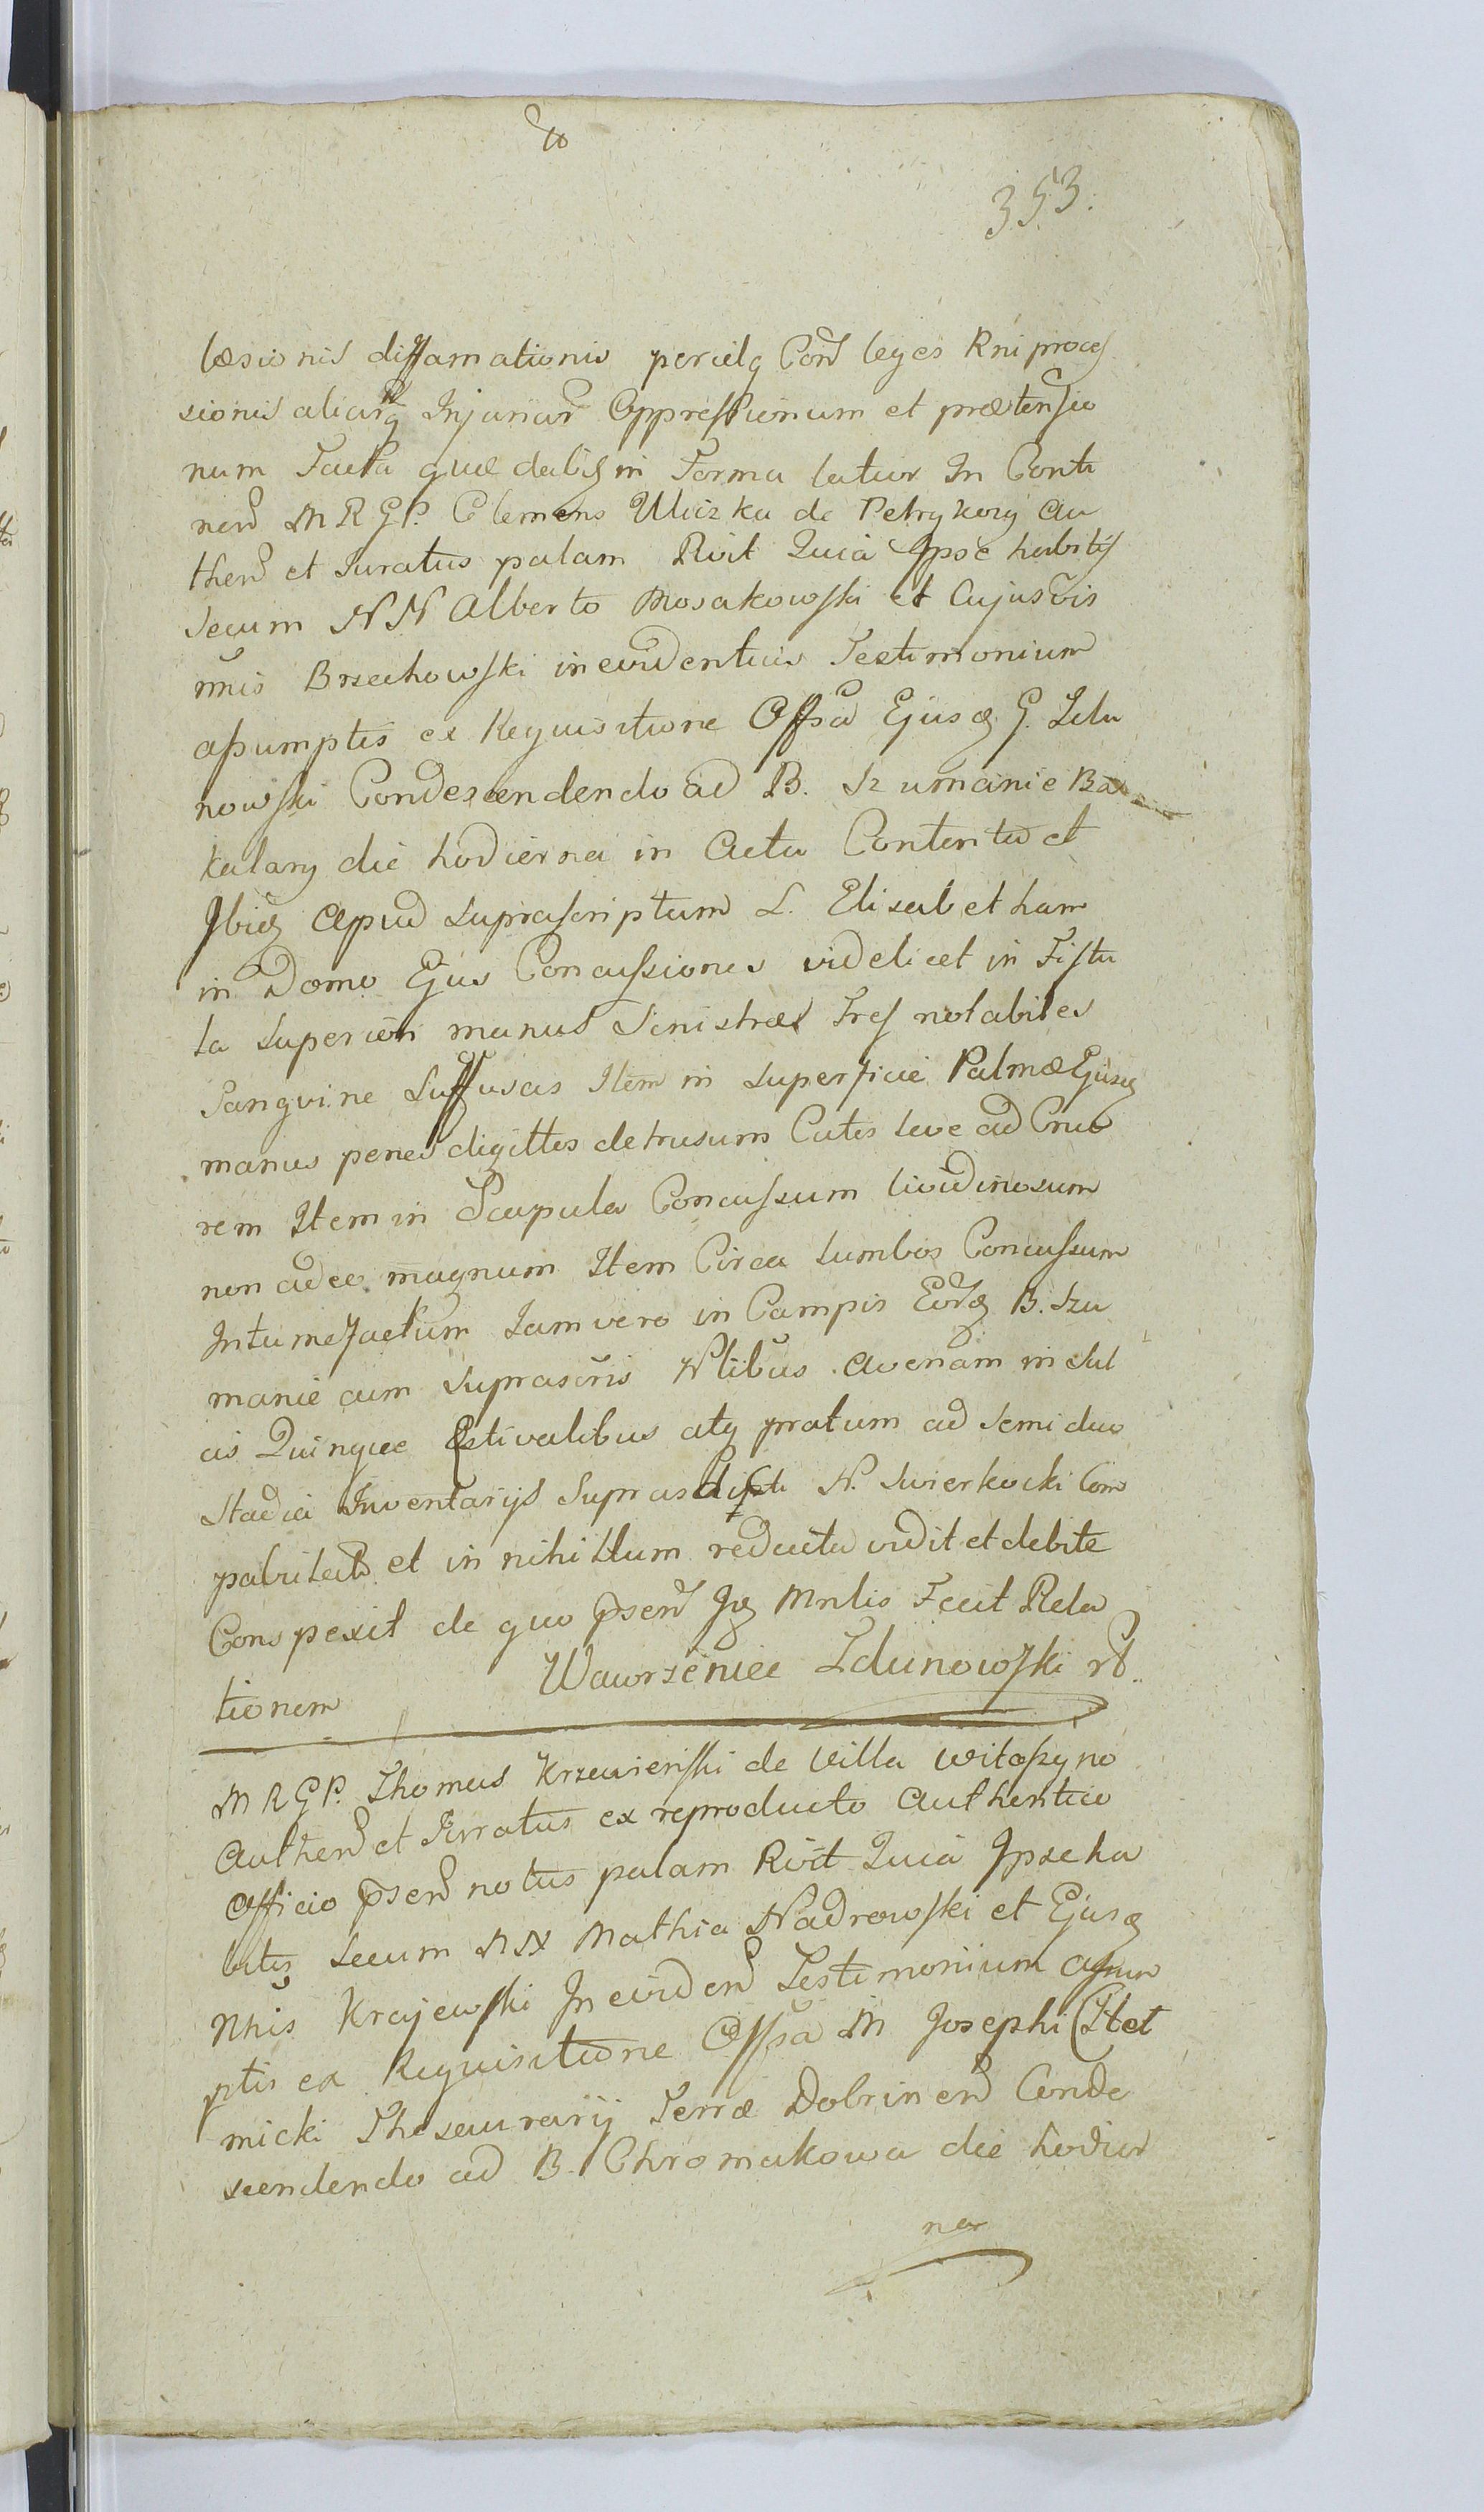 353.
læsionis diffamationis periclq Cont leges Rni proces
sionis aliarq Injuriar Oppressionum et prætensio
num Facta quæ debiq in Forma latior In Conti
nen M R G P. Clemens Uliczka de Petrykozy au
then et Juratus palam Rvit Quia Ipse habitis
secum NN Alberto Mosakowski et Cujusvis
nnis Brzechowski in evidentius Testimonium
assumptis ex Requisitione Offsa Ejusq G. Zdu
nowski Condescendendo ad B. Szumanie Ba
kalary die hodierna in Actu Contenta et
Ibiq Apud suprascriptum L. Elisabetham
in Domo Ejus Concussiones videlicet in Fistu
la superiori manus Sinistræ Tres notabiles
Sanguine Suffusas Item in superficie Palmæ Ejusq
manus penes digittos detrusum Cutis leve ad Cruo
rem Item in Scapula Concussum lividinosum
non adeo magnum Item Circa lumbos Concussum
Intumefactum Jam vero in Campis Eorq B. Szu
manie cum suprascris Nlibus Avenam in Sul
cis Quinque Estivalibus atq pratum ad semi duo
Stadia Inventarijs Supras N. Swierkocki Com
et in nihillum redacta vidit et debite
Conspexit de quo psen Iq Mnlis Fecit Rela
tionem Wawrzeniec Zdunowski
M R G P. Thomas Krzewienski de Villa Witoszyno
Authen et Jurratus ex reproducto Authentico
Officio psen notus palam Rvit Quia Ipse ha
bitis secum NN Mathia Nadrowski et Ejusq
Nnis Krajewski In eviden Testimonium Assum
ptis ex Requisitione Offsa M Josephi Chet
micki Thesaurarij Terræ Dobrinen Conde
scendendo ad B. Chromakowa die hodier
na